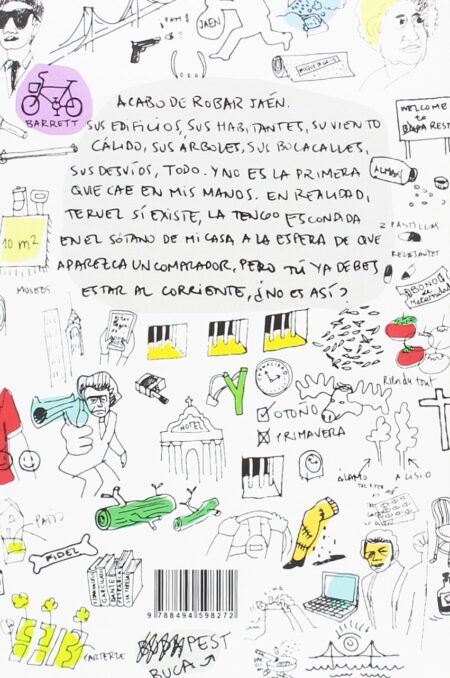 PAM!
JAÉN
BARRETT
ACABO DE ROBAR JAÉN.
SUS EDIFICIOS, SUS HABITANTES, SU VIENTO
CÁLIDO, SUS ÁRBOLES, SUS BOCACALLES,
SUS DESVÍOS, TODO. Y NO ES LA PRIMERA
QUE CAE EN MIS MANOS. EN REALIDAD,
TERUEL SÍ EXISTE, LA TENGO ESCONDIDA
EN EL SÓTANO DE MI CASA A LA ESPERA DE QUE
APAREZCA UN COMPRADOR, PERO TÚ YA DEBES
ESTAR AL CORRIENTE, ¿NO ES ASÍ?
WELCOME
TO
REST
ALMAX
10 m2
2 PASTILLAS
RELAJANTES
MUSEOS
BONO
de
Maternidad
Rien du tout
OTOÑO
PRIMAVERA
HOTEL
ÁLAMO
ALISIO
FIDEL
GARCILASO
DANTE
PARTERRE
9788494598272
PEST
BUCA